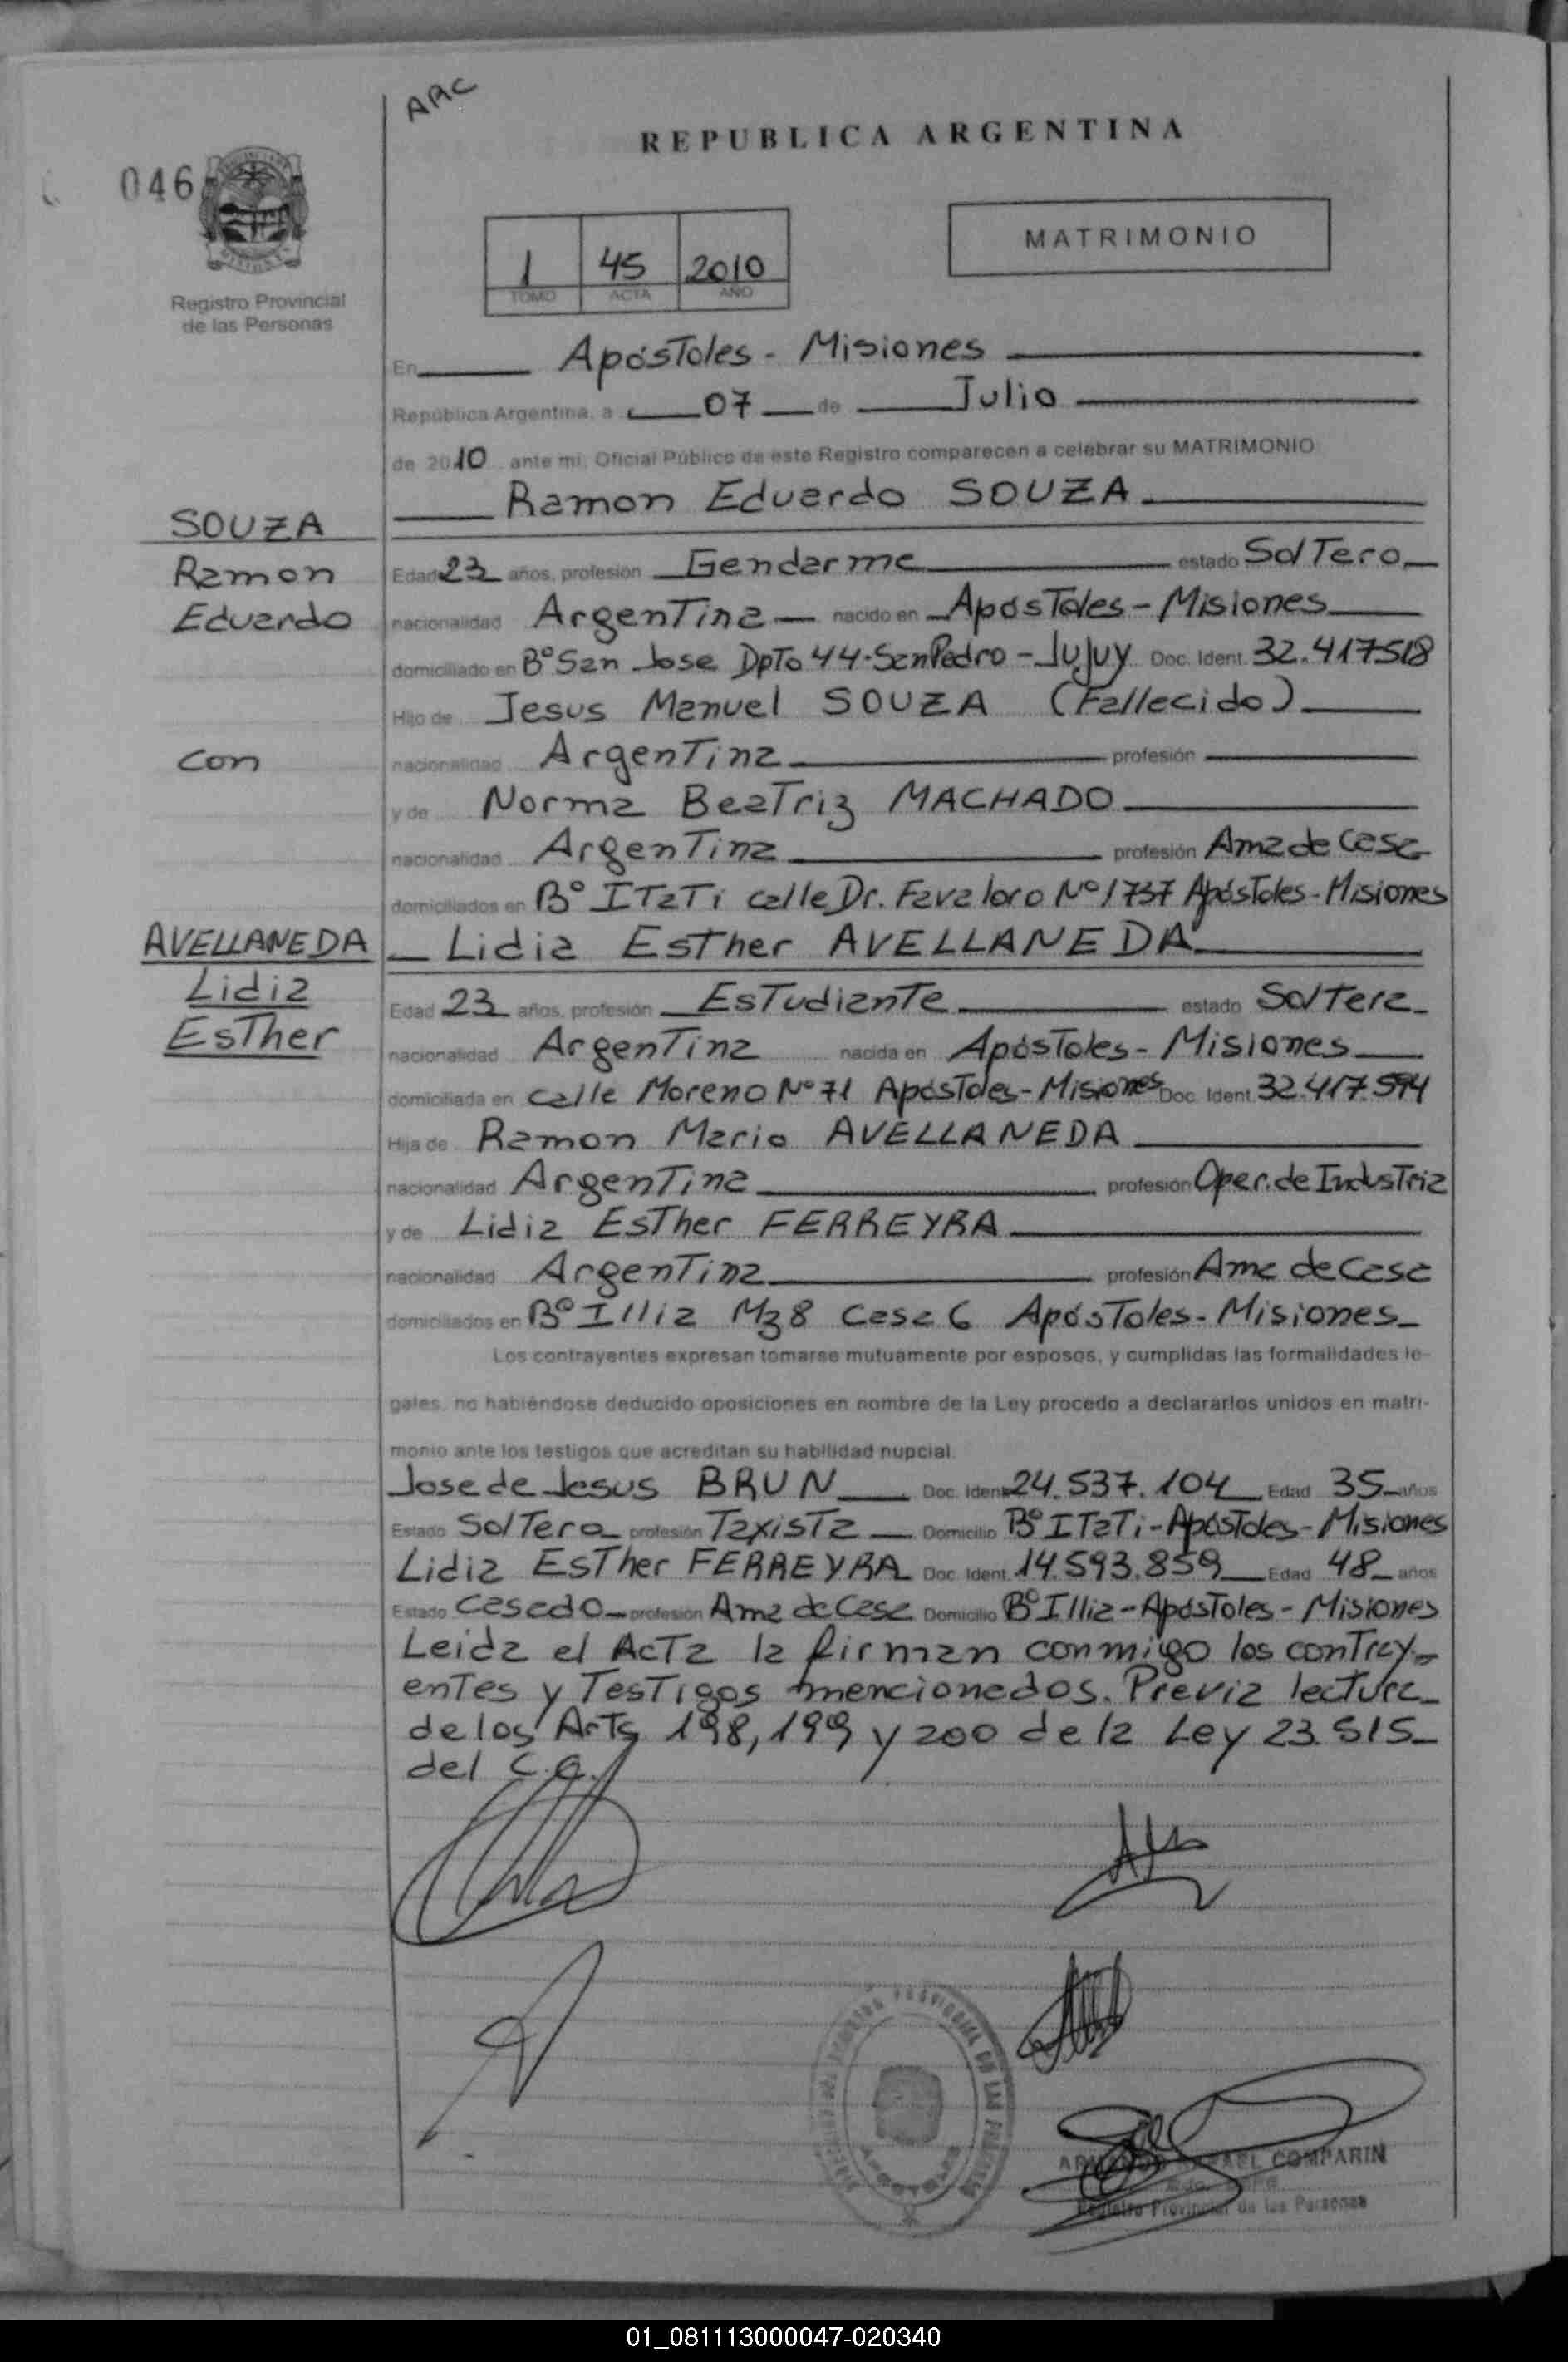 ARC
REPUBLICA ARGENTINA
046
MATRIMONIO
1 45 2010
TOMO ACTA AÑO
Registro Provincial
de las Personas
En Apóstoles - Misiones
República Argentina, a 07 de Julio
de 2010 ante mi, Oficial Público de este Registro comparecen a celebrar su MATRIMONIO
Ramon Eduardo SOUZA
SOUZA
Ramon
Eduardo
Edad 23 años, profesión Gendarme estado Soltero
nacionalidad Argentina nacido en Apóstoles - Misiones
domiciliado en B° San Jose Dpto 44 - San Pedro - Jujuy Doc. Ident. 32.417518
Hijo de Jesus Manuel SOUZA (Fallecido)
con
nacionalidad Argentina profesión
y de Norma Beatriz MACHADO
nacionalidad Argentina profesión Ama de Casa
domiciliados en B° Itati calle Dr. Favaloro N° 1737 Apóstoles - Misiones
AVELLANEDA
Lidia
Esther
Lidia Esther AVELLANEDA
Edad 23 años, profesión Estudiante estado Soltera
nacionalidad Argentina nacida en Apóstoles - Misiones
domiciliada en calle Moreno N° 71 Apóstoles - Misiones Doc. Ident. 32.417.594
Hija de Ramon Mario AVELLANEDA
nacionalidad Argentina profesión Oper. de Industria
y de Lidia Esther FERREYRA
nacionalidad Argentina profesión Ama de Casa
domiciliados en B° Illia Mz 8 Casa 6 Apóstoles - Misiones
Los contrayentes expresan tomarse mutuamente por esposos, y cumplidas las formalidades le-
gales, no habiéndose deducido oposiciones en nombre de la Ley procedo a declararlos unidos en matri-
monio ante los testigos que acreditan su habilidad nupcial.
Jose de Jesus BRUN Doc. Ident. 24.537.104 Edad 35 años
Estado Soltero profesión Taxista Domicilio B° Itati - Apóstoles - Misiones
Lidia Esther FERREYRA Doc. Ident. 14.593.859 Edad 48 años
Estado Casado profesión Ama de Casa Domicilio B° Illia - Apóstoles - Misiones
Leida el Acta la firman conmigo los contray-
entes y Testigos mencionados. Previa lectura
de los Arts 198, 199 y 200 de la Ley 23.515
del C.C.
COMPARIN
Registro Provincial de las Personas
01_081113000047-020340